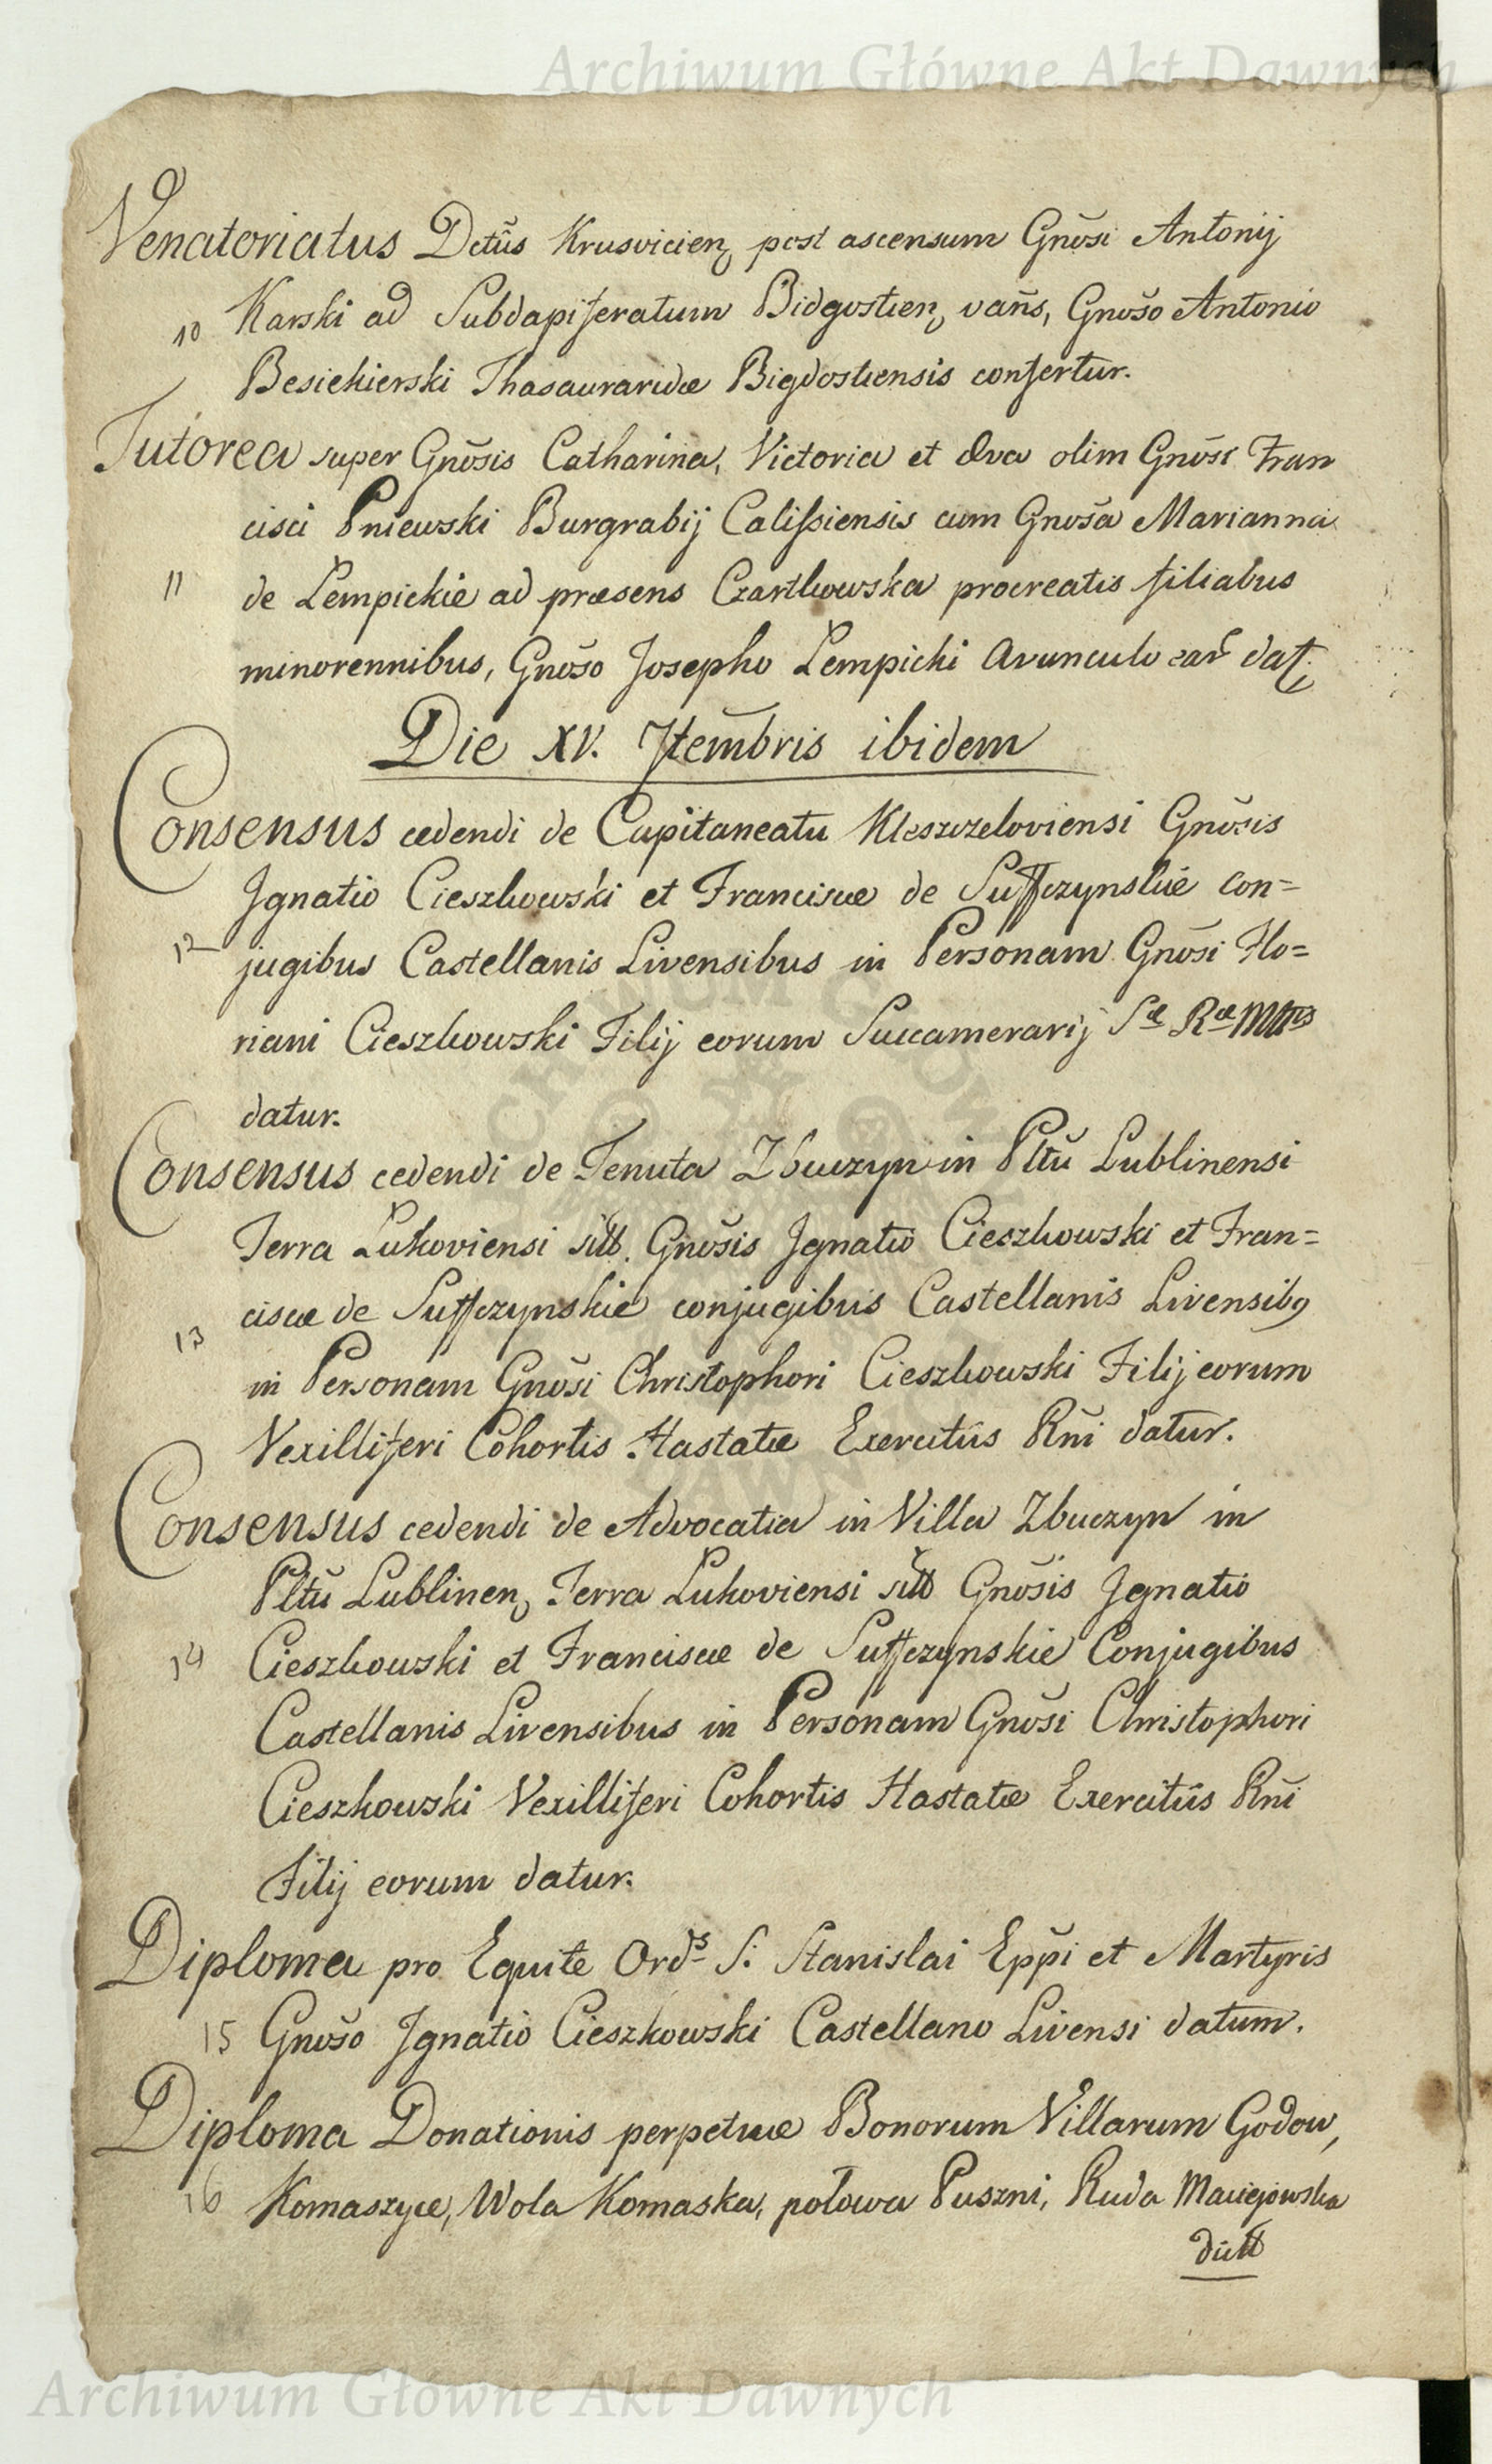 Archiwum Główne Akt Dawnych
Venatoriatus Dctûs Krusvicien, post ascensum Gnõsi Antonij
10 Karski ad Subdapiferatum Bidgostien, vañs, Gnõso Antonio
Besiekierski Thasauraridæ Bigdostiensis confertur.
Tutorea super Gnõsis Catharina, Victoria et Eva olim Gnõsi Fran
cisci Pniewski Burgrabij Calissiensis cum Gnõsa Marianna
11 de Lempickie ad præsens Czartkowska procreatis filiabus
minorennibus, Gnõso Josepho Lempicki Avunculo ear dat
Die XV. 7tembris ibidem
Consensus cedendi de Capitaneatu Kleszczeloviensi Gnõsis
Jgnatio Cieszkowski et Franciscæ de Suffczynskie con=
12 jugibus Castellanis Livensibus in Personam Gnõsi Flo=
riani Cieszkowski Filij eorum Succamerarij Sæ Ræ Mttis
datur.
Consensus cedendi de Tenuta Zbuczyn in Pltũ Lublinensi
Terra Lukoviensi sitt. Gnõsis Jgnatio Cieszkowski et Fran=
ciscæ de Suffczynskie conjugibus Castellanis Livensib9
13 in Personam Gnõsi Christophori Cieszkowski Filij eorum
Vexilliferi Cohortis Hastatæ Exercitûs Rñi datur.
Consensus cedendi de Advocatia in Villa Zbuczyn in
Pltũ Lublinen, Terra Lukoviensi sitt Gnõsis Jgnatio
14 Cieszkowski et Franciscæ de Suffczynskie Conjugibus
Castellanis Livensibus in Personam Gnõsi Christophori
Cieszkowski Vexilliferi Cohortis Hastatæ Exercitûs Rñi
Filij eorum datur.
Diploma pro Equite Ords S. Stanislai Eppi et Martyris
15 Gnõso Jgnatio Cieszkowski Castellano Livensi datum.
Diploma Donationis perpetuæ Bonorum Villarum Godow,
16 Komaszyce, Wola Komaska, połowa Puszni, Ruda Maciejowska
Archiwum Główne Akt Dawnych